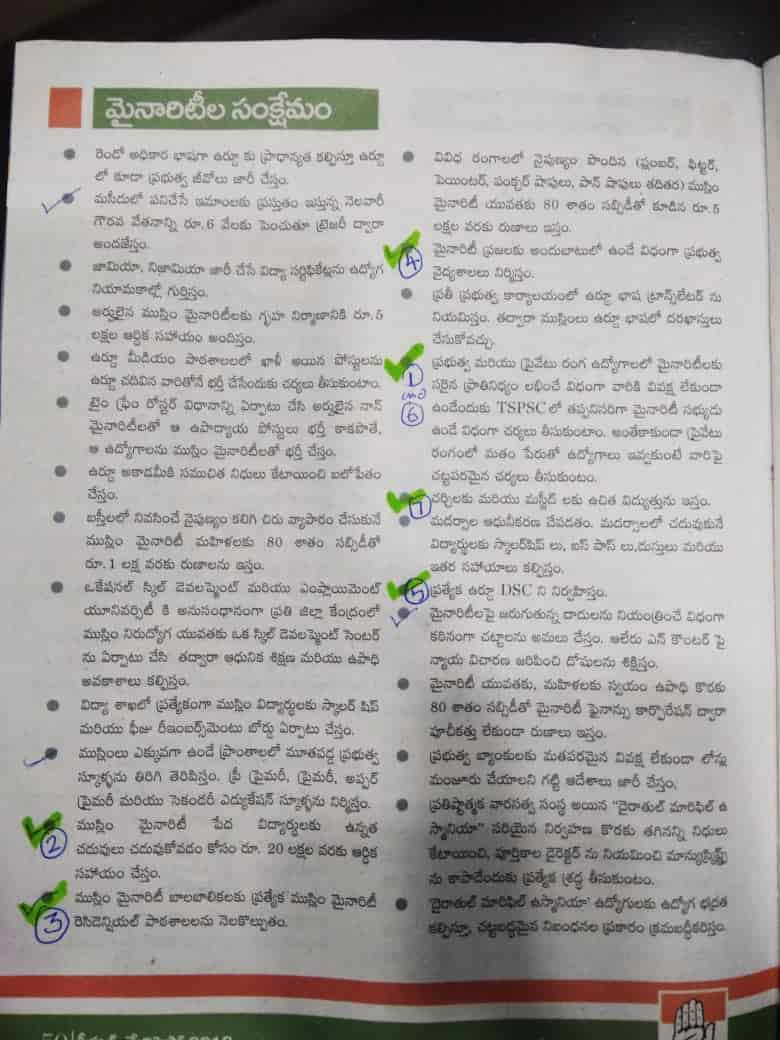 మైనారిటీల సంక్షేమం
రెండో అధికార భాషగా ఉర్దూ కు ప్రాధాన్యత కల్పిస్తూ ఉర్దూ
లో కూడా ప్రభుత్వ జీవోలు జారీ చేస్తం.
మసీదులో పనిచేసే ఇమాంలకు ప్రస్తుతం ఇస్తున్న నెలవారీ
గౌరవ వేతనాన్ని రూ.6 వేలకు పెంచుతూ ట్రెజరీ ద్వారా
అందజేస్తం.
జామియా, నిజామియా జారీ చేసే విద్యా సర్టిఫికేట్లను ఉద్యోగ
నియామకాల్లో గుర్తిస్తం.
అర్హులైన ముస్లిం మైనారిటీలకు గృహ నిర్మాణానికి రూ.5
లక్షల ఆర్థిక సహాయం అందిస్తం.
ఉర్దూ మీడియం పాఠశాలలలో ఖాళీ అయిన పోస్టులను
ఉర్దూ చదివిన వారితోనే భర్తీ చేసేందుకు చర్యలు తీసుకుంటాం.
టైం ఫ్రేం రోస్టర్ విధానాన్ని ఏర్పాటు చేసి అర్హులైన నాన్
మైనారిటీలతో ఆ ఉపాధ్యాయ పోస్టులు భర్తీ కాకపోతే,
ఆ ఉద్యోగాలను ముస్లిం మైనారిటీలతో భర్తీ చేస్తం.
ఉర్దూ అకాడమీకి సముచిత నిధులు కేటాయించి బలోపేతం
చేస్తం.
బస్తీలలో నివసించే నైపుణ్యం కలిగి చిరు వ్యాపారం చేసుకునే
ముస్లిం మైనారిటీ మహిళలకు 80 శాతం సబ్సిడీతో
రూ.1 లక్ష వరకు రుణాలను ఇస్తం.
ఒకేషనల్ స్కిల్ డెవలప్మెంట్ మరియు ఎంప్లాయిమెంట్
యూనివర్సిటీ కి అనుసంధానంగా ప్రతి జిల్లా కేంద్రంలో
ముస్లిం నిరుద్యోగ యువతకు ఒక స్కిల్ డెవలప్మెంట్ సెంటర్
ను ఏర్పాటు చేసి తద్వారా ఆధునిక శిక్షణ మరియు ఉపాధి
అవకాశాలు కల్పిస్తం.
విద్యా శాఖలో ప్రత్యేకంగా ముస్లిం విద్యార్థులకు స్కాలర్ షిప్
మరియు ఫీజు రీఇంబర్స్‌మెంటు బోర్డు ఏర్పాటు చేస్తం.
ముస్లింలు ఎక్కువగా ఉండే ప్రాంతాలలో మూతపడ్డ ప్రభుత్వ
స్కూళ్ళను తిరిగి తెరిపిస్తం. ప్రీ ప్రైమరీ, ప్రైమరీ, అప్పర్
ప్రైమరీ మరియు సెకండరీ ఎడ్యుకేషన్ స్కూళ్ళను నిర్మిస్తం.
2 ముస్లిం మైనారిటీ పేద విద్యార్థులకు ఉన్నత
చదువులు చదువుకోవడం కోసం రూ. 20 లక్షల వరకు ఆర్థిక
సహాయం చేస్తం.
3 ముస్లిం మైనారిటీ బాలబాలికలకు ప్రత్యేక ముస్లిం మైనారిటీ
రెసిడెన్షియల్ పాఠశాలలను నెలకొల్పుతం.
వివిధ రంగాలలో నైపుణ్యం పొందిన (ప్లంబర్, ఫిట్టర్,
పెయింటర్, పంక్చర్ షాపులు, పాన్ షాపులు తదితర) ముస్లిం
మైనారిటీ యువతకు 80 శాతం సబ్సిడీతో కూడిన రూ.5
లక్షల వరకు రుణాలు ఇస్తం.
4 మైనారిటీ ప్రజలకు అందుబాటులో ఉండే విధంగా ప్రభుత్వ
వైద్యశాలలు నిర్మిస్తం.
ప్రతీ ప్రభుత్వ కార్యాలయంలో ఉర్దూ భాష ట్రాన్స్‌లేటర్ ను
నియమిస్తం. తద్వారా ముస్లింలు ఉర్దూ భాషలో దరఖాస్తులు
చేసుకోవచ్చు.
1 and 6 ప్రభుత్వ మరియు ప్రైవేటు రంగ ఉద్యోగాలలో మైనారిటీలకు
సరైన ప్రాతినిధ్యం లభించే విధంగా వారికి వివక్ష లేకుండా
ఉండేందుకు TSPSC లో తప్పనిసరిగా మైనారిటీ సభ్యుడు
ఉండే విధంగా చర్యలు తీసుకుంటాం. అంతేకాకుండా ప్రైవేటు
రంగంలో మతం పేరుతో ఉద్యోగాలు ఇవ్వకుంటే వారిపై
చట్టపరమైన చర్యలు తీసుకుంటం.
7 చర్చిలకు మరియు మస్జీద్ లకు ఉచిత విద్యుత్తును ఇస్తం.
మదర్సాల ఆధునీకరణ చేపడతం. మదర్సాలలో చదువుకునే
విద్యార్థులకు స్కాలర్‌షిప్ లు, బస్ పాస్ లు,దుస్తులు మరియు
ఇతర సహాయాలు కల్పిస్తం.
5 ప్రత్యేక ఉర్దూ DSC ని నిర్వహిస్తం.
మైనారిటీలపై జరుగుతున్న దాడులను నియంత్రించే విధంగా
కఠినంగా చట్టాలను అమలు చేస్తం. ఆలేరు ఎన్ కౌంటర్ పై
న్యాయ విచారణ జరిపించి దోషులను శిక్షిస్తం.
మైనారిటీ యువతకు, మహిళలకు స్వయం ఉపాధి కొరకు
80 శాతం సబ్సిడీతో మైనారిటీ ఫైనాన్సు కార్పొరేషన్ ద్వారా
పూచీకత్తు లేకుండా రుణాలు ఇస్తం.
ప్రభుత్వ బ్యాంకులకు మతపరమైన వివక్ష లేకుండా లోన్లు
మంజూరు చేయాలని గట్టి ఆదేశాలు జారీ చేస్తం,
ప్రతిష్ఠాత్మక వారసత్వ సంస్థ అయిన "దైరాతుల్ మారిఫిల్ ఉ
స్మానియా" సరియైన నిర్వహణ కొరకు తగినన్ని నిధులు
కేటాయించి, పూర్తికాల డైరెక్టర్ ను నియమించి మాన్యుస్క్రిప్ట్
ను కాపాడేందుకు ప్రత్యేక శ్రద్ధ తీసుకుంటం.
'దైరాతుల్ మారిఫిల్ ఉస్మానియా' ఉద్యోగులకు ఉద్యోగ భద్రత
కల్పిస్తూ, చట్టబద్ధమైన నిబంధనల ప్రకారం క్రమబద్ధీకరిస్తం.